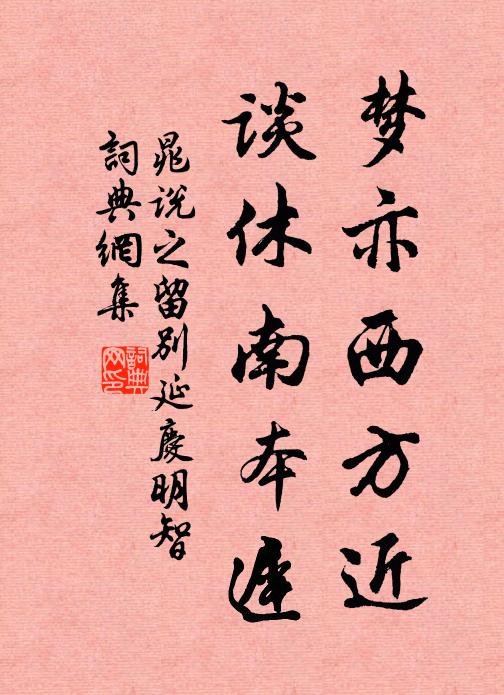 梦亦西方近
谈休南本遲
晁说之留别延慶明智
詞典網集
詞典網印